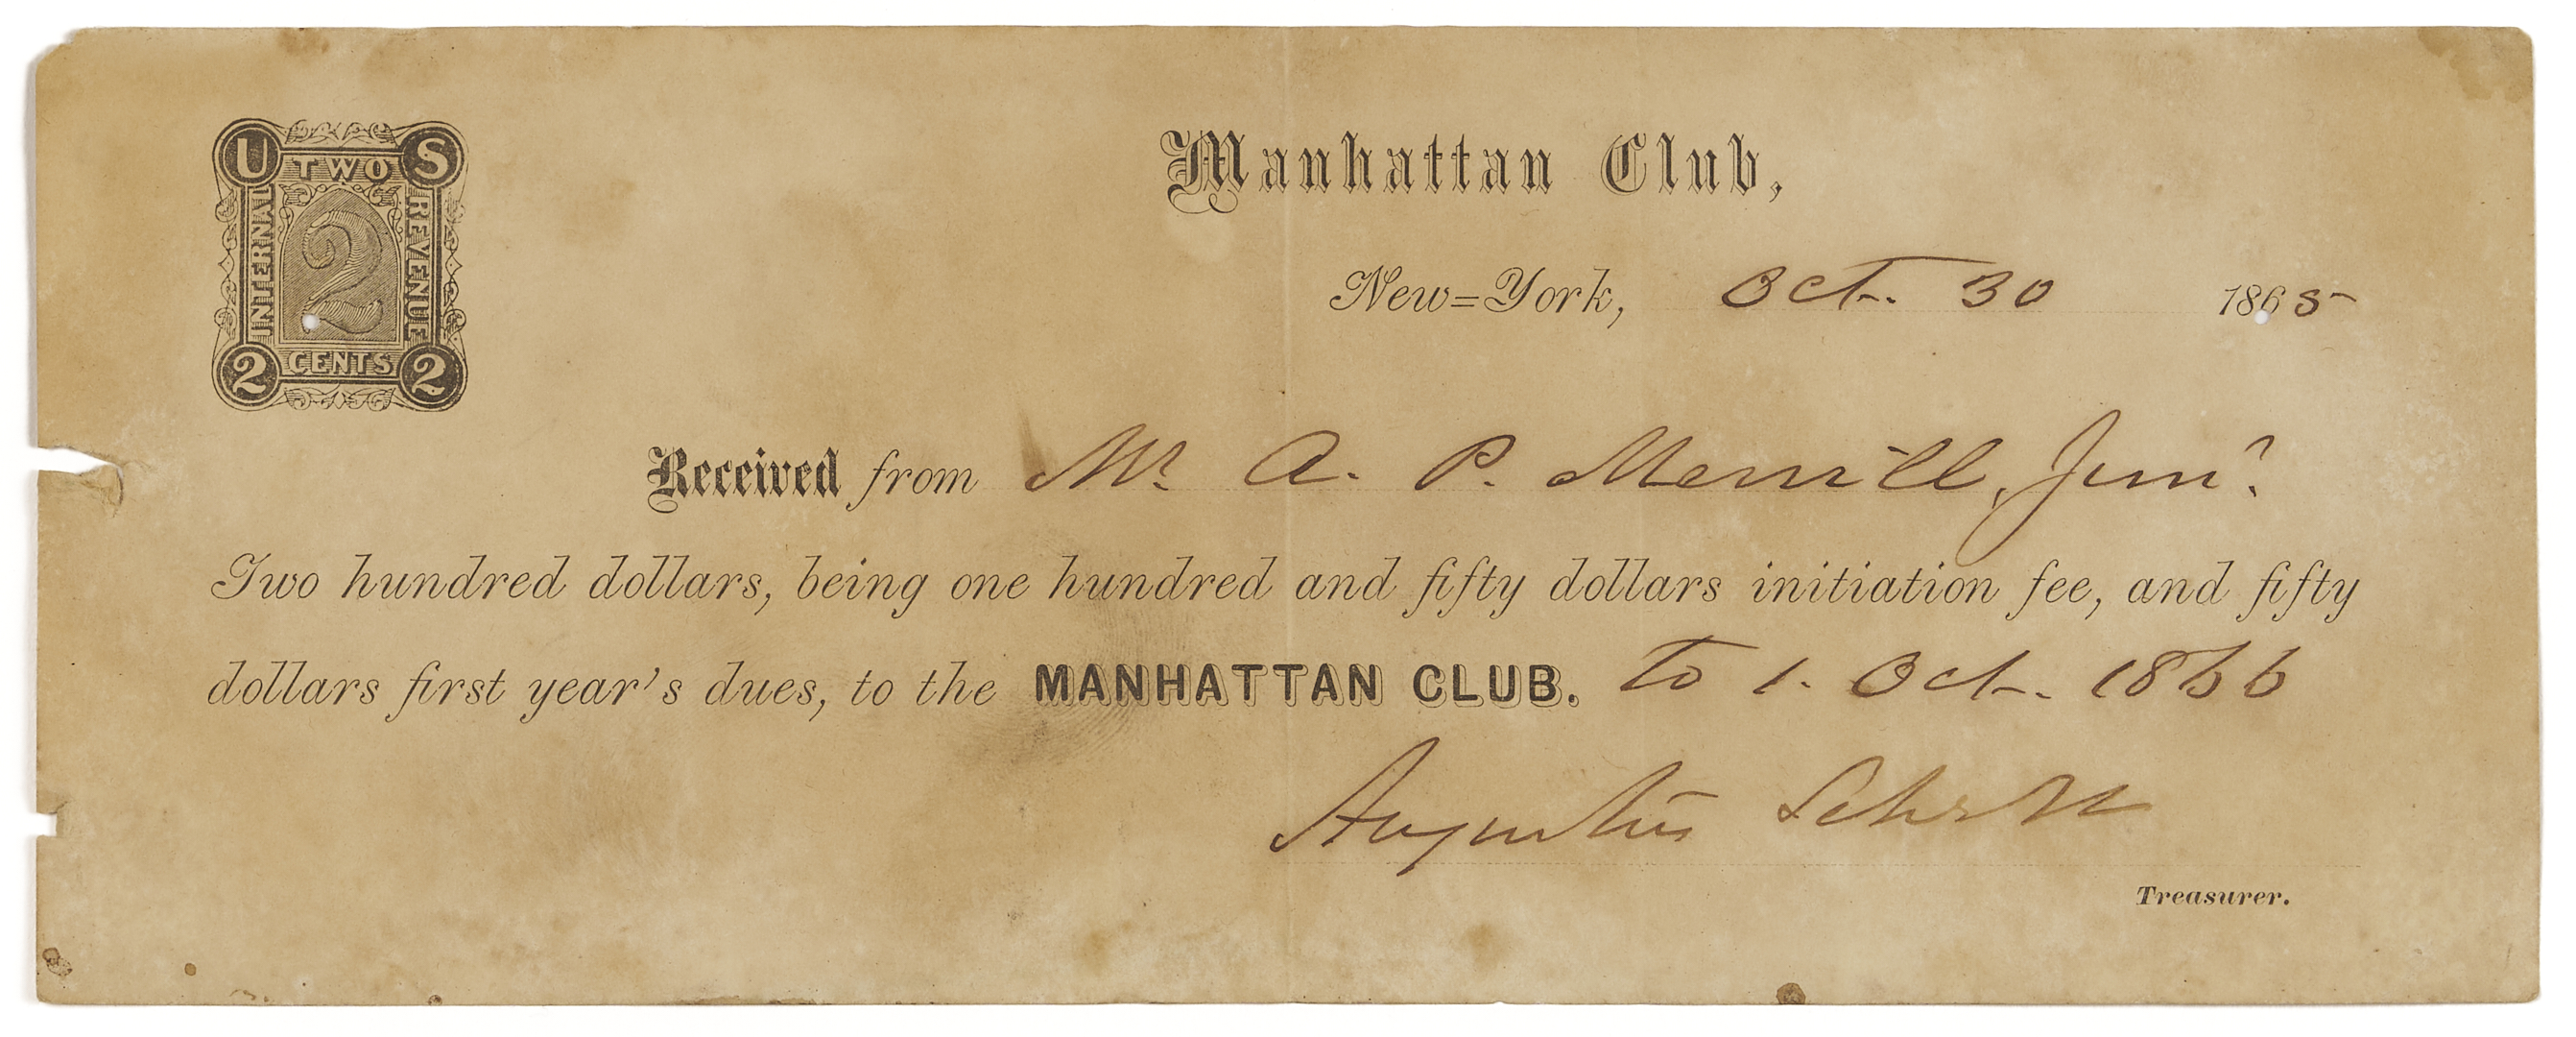 U TWO S
INTERNAL 2 REVENUE
2 CENTS 2
Manhattan Club,
New=York, Oct. 30 1865
Received from Mr. A. P. Merrill, Junr.
Two hundred dollars, being one hundred and fifty dollars initiation fee, and fifty
dollars first year's dues, to the MANHATTAN CLUB. to 1. Oct. 1866
Augustus Schell
Treasurer.